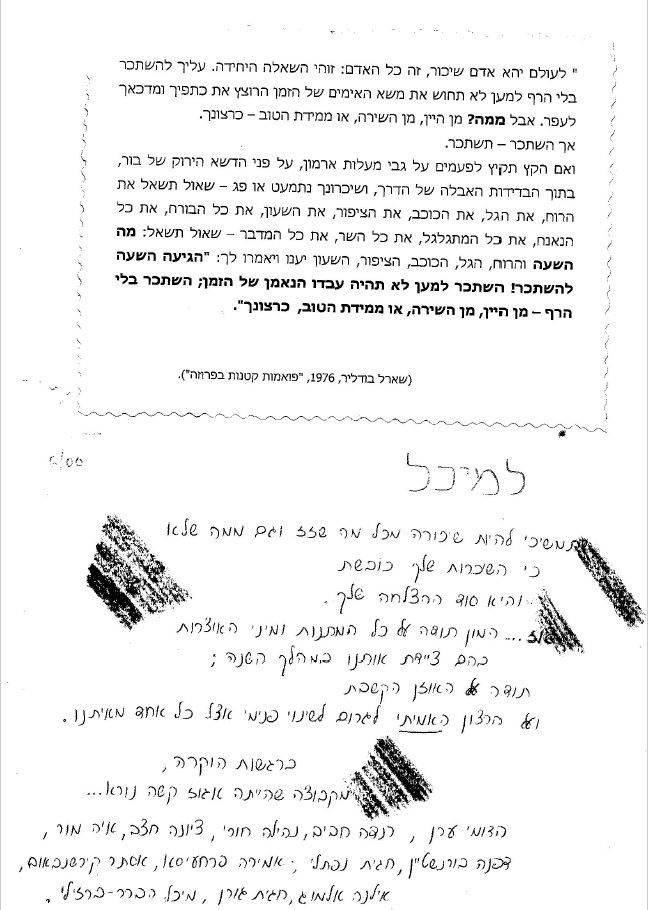 " לעולם יהא אדם שיכור, זה כל האדם: זוהי השאלה היחידה. עליך להשתכר
בלי הרף למען לא תחוש את משא האימים של הזמן הרוצץ את כתפיך ומדכאך
לעפר. אבל ממה? מן היין, מן השירה, או ממידת הטוב – כרצונך.
אך השתכר – תשתכר.
ואם הקץ תקיץ לפעמים על גבי מעלות ארמון, על פני הדשא הירוק של בור,
בתוך הבדידות האבלה של הדרך, ושיכרונך נתמעט או פג – שאול תשאל את
הרוח, את הגל, את הכוכב, את הציפור, את השעון, את כל הבורח, את כל
הנאנח, את כל המתגלגל, את כל השר, את כל המדבר – שאול תשאל: מה
השעה והרוח, הגל, הכוכב, הציפור, השעון יענו ויאמרו לך: "הגיעה השעה
להשתכר! השתכר למען לא תהיה עבדו הנאמן של הזמן; השתכר בלי
הרף – מן היין, מן השירה, או ממידת הטוב, כרצונך".
(שארל בודליר, 1976, "פואמות קטנות בפרוזה").
למיכל
תמשיכי להיות שיכורה מכל מה שזז וגם ממה שלא
כי השיכרות שלך כובשת
והיא סוד ההצלחה שלך.
המון תודה על כל המתנות ומיני האוצרות
בהם ציידת אותנו במהלך השנה;
תודה על האוזן הקשבת
ועל הרצון האמיתי לגרום לשינוי פנימי אצל כל אחד מאיתנו.
ברגשות הוקרה,
מקבוצה שהייתה אגוז קשה נורא...
ערן, רנדה חביב, נהילה חורי, ציונה חצב, איה מור,
דפנה בורנשטיין, חגית נפתלי, אמירה אסתר קירשנבאום,
אילנה אלמוג, חגית גורן, מיכל הברר-ברזילי.